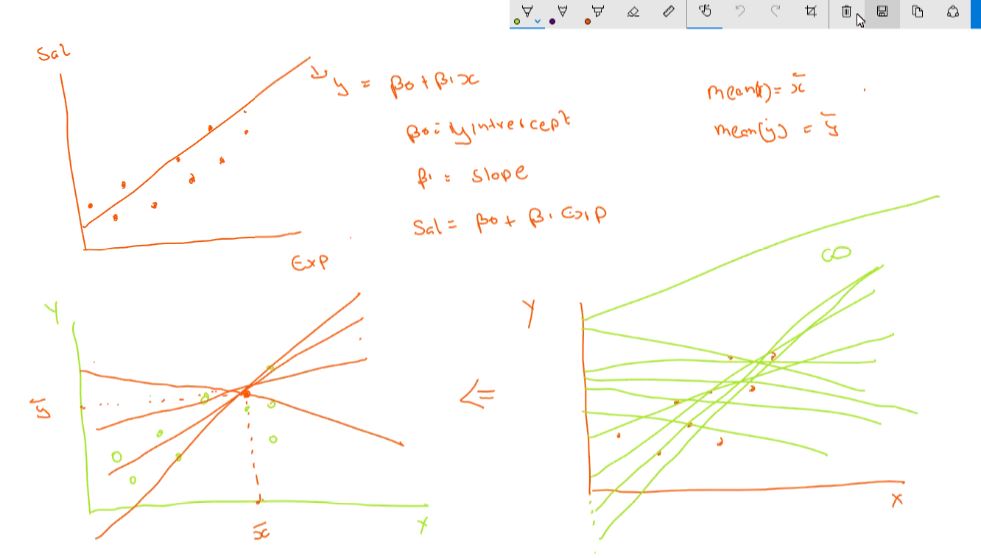 Sal
y = β0 + β1x
β0: y intercept
β1 = slope
Sal = β0 + β1 Exp
Exp
mean(x) = x̄
mean(y) = ȳ
Y
ȳ
x̄
X
<=
Y
∞
X